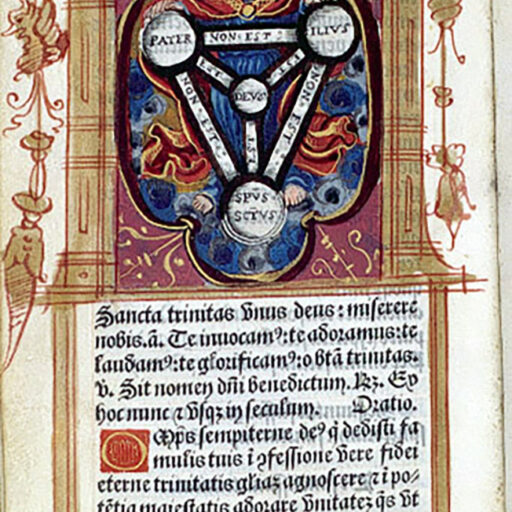 PATER NON·EST· FILIVS
EST EST
DEVS
NON·EST EST NON·EST
SPVS
SCTVS
Sancta trinitas vnus deus: miserere
nobis.ā. Te inuocamꝰ: te adoramus: te
laudamꝰ: te glorificamꝰ: o btā trinitas.
v. Sit nomen dn̄i benedictum. ℞. Ex
hoc nunc ⁊ vsqꝫ in seculum. Oratio.
OMp̄s sempiterne deꝰ q̇ dedisti fa
mulis tuis ī ꝯfessione vere fidei
eterne trinitatis gliaꝫ agnoscere ⁊ ī po-
tētia maiestatis adorare vnitateꝫ q̄s vt